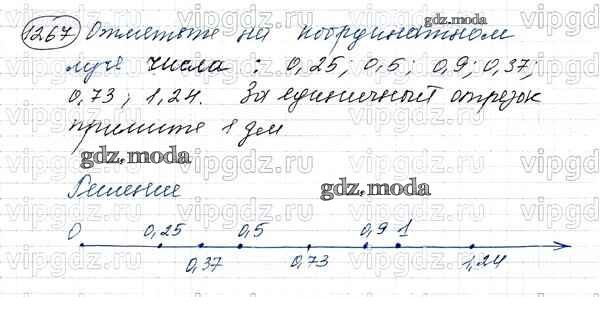 1267 Отметьте на координатном
луче числа : 0,25; 0,5; 0,9; 0,37;
0,73; 1,24. За единичный отрезок
примите 1 дм
Решение
0 0,25 0,5 0,9 1
0,37 0,73 1,24
gdz.moda
gdz.moda
gdz.moda
vipgdz.ru